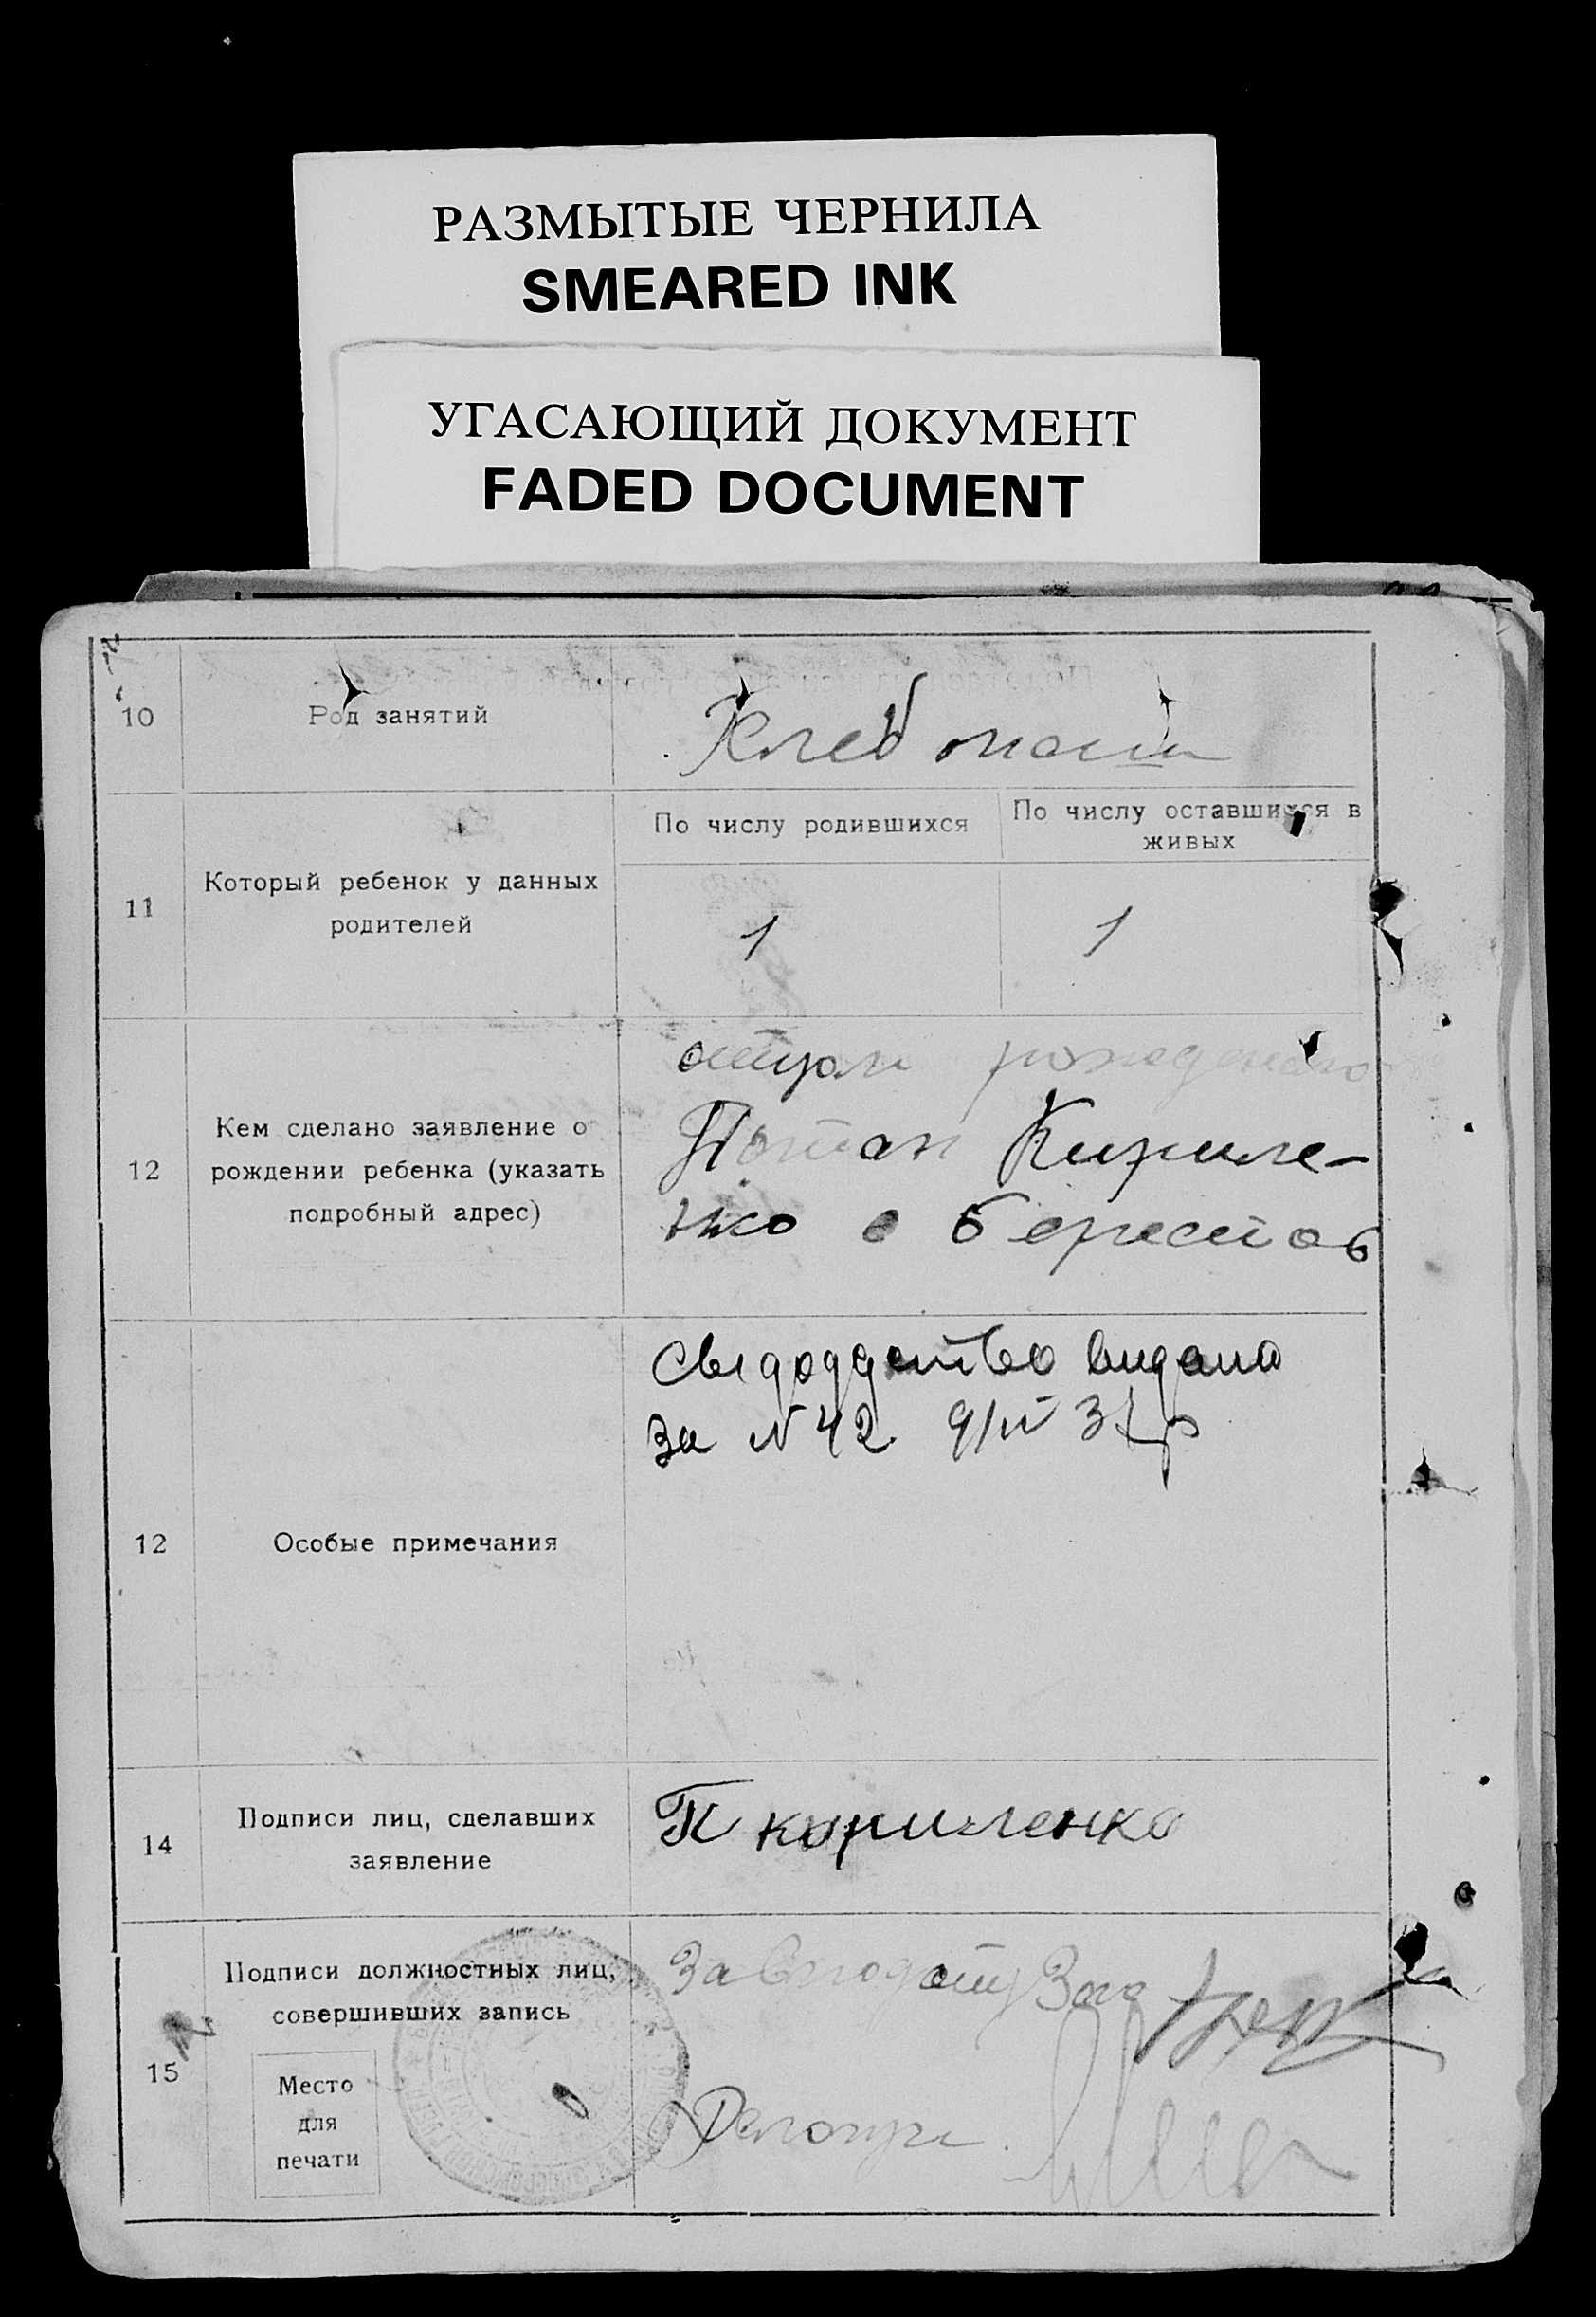 РАЗМЫТЫЕ ЧЕРНИЛА
SMEARED INK
УГАСАЮЩИЙ ДОКУМЕНТ
FADED DOCUMENT
10
Род занятий
Хлебопаш
11
Который ребенок у данных
родителей
По числу родившихся
По числу оставшихся в
живых
1
1
12
Кем сделано заявление о
рождении ребенка (указать
подробный адрес)
отцом
Потап Кириле-
нко с Берестов
12
Особые примечания
видано
за N 42
14
Подписи лиц, сделавших
заявление
П кириленко
15
Подписи должностных лиц,
совершивших запись
Место
для
печати
Делопр